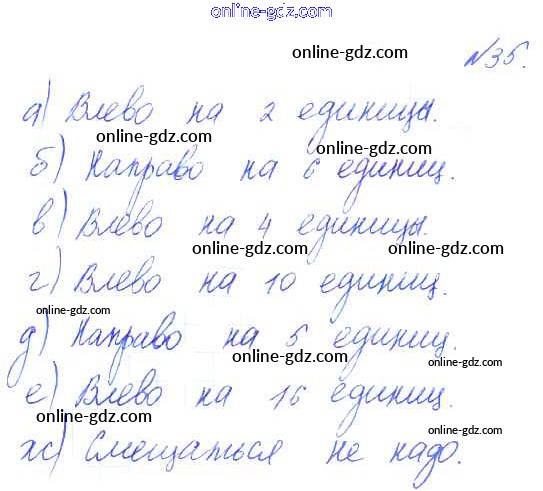 online-gdz.com
online-gdz.com
№35.
а) Влево на 2 единицы.
online-gdz.com online-gdz.com
б) Направо на 6 единиц.
online-gdz.com
в) Влево на 4 единицы.
online-gdz.com online-gdz.com
г) Влево на 10 единиц.
online-gdz.com online-gdz.com
д) Направо на 5 единиц.
online-gdz.com online-gdz.com
е) Влево на 16 единиц.
online-gdz.com online-gdz.com
ж) Смещаться не надо.
online-gdz.com